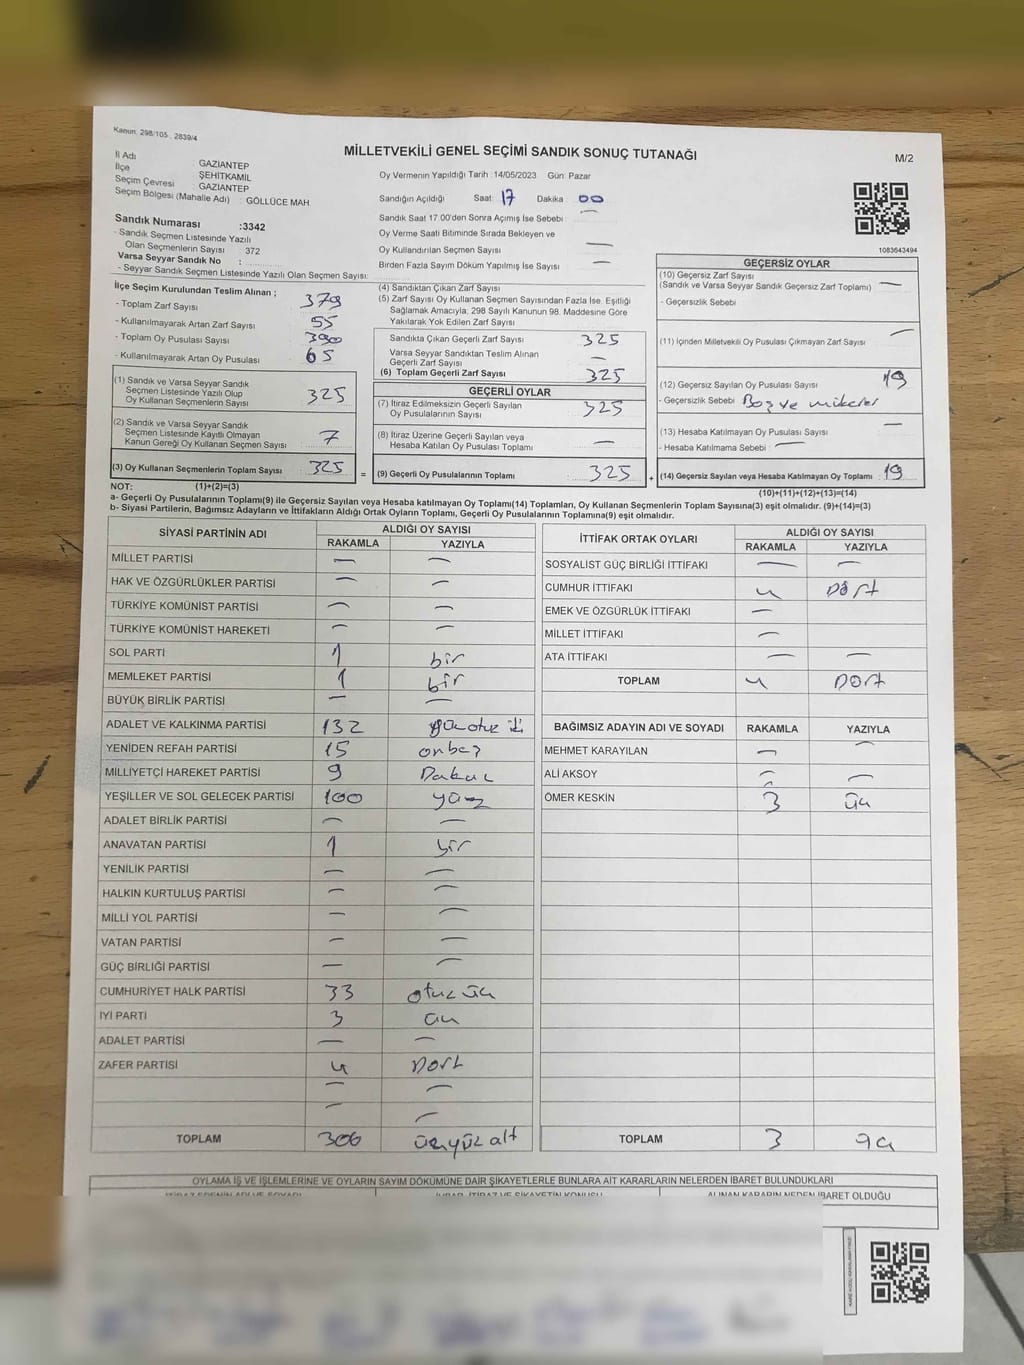 Kanun: 298/105 2839/4
MİLLETVEKİLİ GENEL SEÇİMİ SANDIK SONUÇ TUTANAĞI
M/2
İl Adı : GAZİANTEP
İlçe : ŞEHİTKAMİL
Seçim Çevresi : GAZİANTEP
Seçim Bölgesi (Mahalle Adı) : GÖLLÜCE MAH.
Oy Vermenin Yapıldığı Tarih :14/05/2023 Gün: Pazar
Sandığın Açıldığı Saat: 17 Dakika 00
Sandık Saat 17.00'den Sonra Açımış İse Sebebi —
Oy Verme Saati Bitiminde Sırada Bekleyen ve
Oy Kullandırılan Seçmen Sayısı —
Birden Fazla Sayım Döküm Yapılmış İse Sayısı —
1083643494
Sandık Numarası :3342
- Sandık Seçmen Listesinde Yazılı
Olan Seçmenlerin Sayısı : 372
Varsa Seyyar Sandık No :
- Seyyar Sandık Seçmen Listesinde Yazılı Olan Seçmen Sayısı:
İlçe Seçim Kurulundan Teslim Alınan ;
- Toplam Zarf Sayısı : 379
- Kullanılmayarak Artan Zarf Sayısı : 55
- Toplam Oy Pusulası Sayısı : 390
- Kullanılmayarak Artan Oy Pusulası : 65
(1) Sandık ve Varsa Seyyar Sandık
Seçmen Listesinde Yazılı Olup
Oy Kullanan Seçmenlerin Sayısı : 325
(2) Sandık ve Varsa Seyyar Sandık
Seçmen Listesinde Kayıtlı Olmayan
Kanun Gereği Oy Kullanan Seçmen Sayısı : 7
(3) Oy Kullanan Seçmenlerin Toplam Sayısı : 325
(4) Sandıktan Çıkan Zarf Sayısı
(5) Zarf Sayısı Oy Kullanan Seçmen Sayısından Fazla İse, Eşitliği
Sağlamak Amacıyla; 298 Sayılı Kanunun 98. Maddesine Göre
Yakılarak Yok Edilen Zarf Sayısı
Sandıkta Çıkan Geçerli Zarf Sayısı : 325
Varsa Seyyar Sandıktan Teslim Alınan
Geçerli Zarf Sayısı : —
(6) Toplam Geçerli Zarf Sayısı : 325
GEÇERLİ OYLAR
(7) İtiraz Edilmeksizin Geçerli Sayılan
Oy Pusulalarının Sayısı : 325
(8) İtiraz Üzerine Geçerli Sayılan veya
Hesaba Katılan Oy Pusulası Toplamı : —
= (9) Geçerli Oy Pusulalarının Toplamı : 325
GEÇERSİZ OYLAR
(10) Geçersiz Zarf Sayısı
(Sandık ve Varsa Seyyar Sandık Geçersiz Zarf Toplamı) : —
- Geçersizlik Sebebi
(11) İçinden Milletvekili Oy Pusulası Çıkmayan Zarf Sayısı : —
(12) Geçersiz Sayılan Oy Pusulası Sayısı : 19
- Geçersizlik Sebebi : Boş ve
(13) Hesaba Katılmayan Oy Pusulası Sayısı : —
- Hesaba Katılmama Sebebi : —
+ (14) Geçersiz Sayılan veya Hesaba Katılmayan Oy Toplamı : 19
NOT: (1)+(2)=(3)
(10)+(11)+(12)+(13)=(14)
a- Geçerli Oy Pusulalarının Toplamı(9) ile Geçersiz Sayılan veya Hesaba katılmayan Oy Toplamı(14) Toplamları, Oy Kullanan Seçmenlerin Toplam Sayısına(3) eşit olmalıdır. (9)+(14)=(3)
b- Siyasi Partilerin, Bağımsız Adayların ve İttifakların Aldığı Ortak Oyların Toplamı, Geçerli Oy Pusulalarının Toplamına(9) eşit olmalıdır.
SİYASİ PARTİNİN ADI ALDIĞI OY SAYISI
RAKAMLA YAZIYLA
MİLLET PARTİSİ — —
HAK VE ÖZGÜRLÜKLER PARTİSİ — —
TÜRKİYE KOMÜNİST PARTİSİ — —
TÜRKİYE KOMÜNİST HAREKETİ — —
SOL PARTİ 1 bir
MEMLEKET PARTİSİ 1 bir
BÜYÜK BİRLİK PARTİSİ — —
ADALET VE KALKINMA PARTİSİ 132
YENİDEN REFAH PARTİSİ 15 onbeş
MİLLİYETÇİ HAREKET PARTİSİ 9 Dokuz
YEŞİLLER VE SOL GELECEK PARTİSİ 100 yüz
ADALET BİRLİK PARTİSİ — —
ANAVATAN PARTİSİ 1 bir
YENİLİK PARTİSİ — —
HALKIN KURTULUŞ PARTİSİ — —
MİLLİ YOL PARTİSİ — —
VATAN PARTİSİ — —
GÜÇ BİRLİĞİ PARTİSİ — —
CUMHURİYET HALK PARTİSİ 33 otuz üç
İYİ PARTİ 3 üç
ADALET PARTİSİ — —
ZAFER PARTİSİ 4 Dört
— —
— —
TOPLAM 306 üçyüz altı
İTTİFAK ORTAK OYLARI ALDIĞI OY SAYISI
RAKAMLA YAZIYLA
SOSYALİST GÜÇ BİRLİĞİ İTTİFAKI — —
CUMHUR İTTİFAKI 4 Dört
EMEK VE ÖZGÜRLÜK İTTİFAKI —
MİLLET İTTİFAKI —
ATA İTTİFAKI — —
TOPLAM 4 Dört
BAĞIMSIZ ADAYIN ADI VE SOYADI RAKAMLA YAZIYLA
MEHMET KARAYILAN — —
ALİ AKSOY — —
ÖMER KESKİN 3 üç
TOPLAM 3 üç
OYLAMA İŞ VE İŞLEMLERİNE VE OYLARIN SAYIM DÖKÜMÜNE DAİR ŞİKAYETLERLE BUNLARA AİT KARARLARIN NELERDEN İBARET BULUNDUKLARI
ALINAN KARARIN NEDEN İBARET OLDUĞU